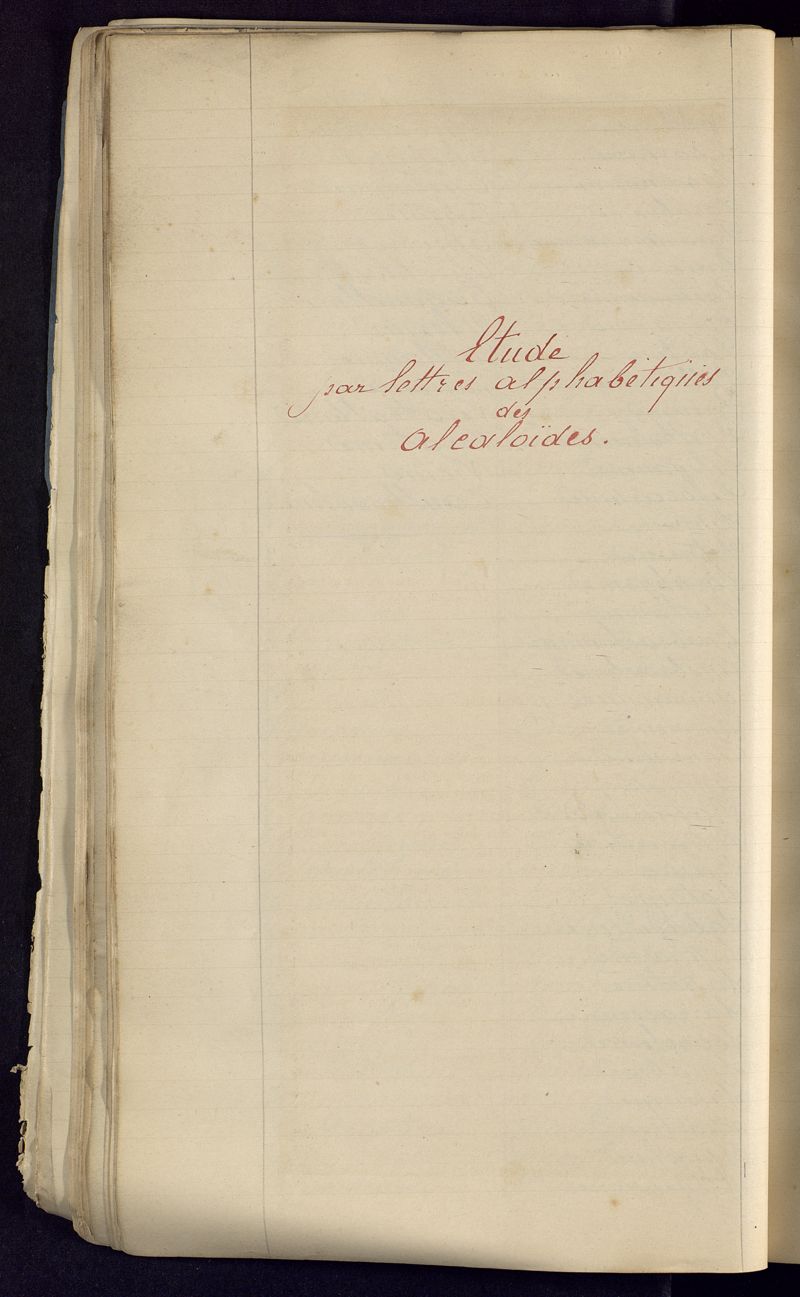 Etude
par lettres alphabétiques
des
alcaloïdes.